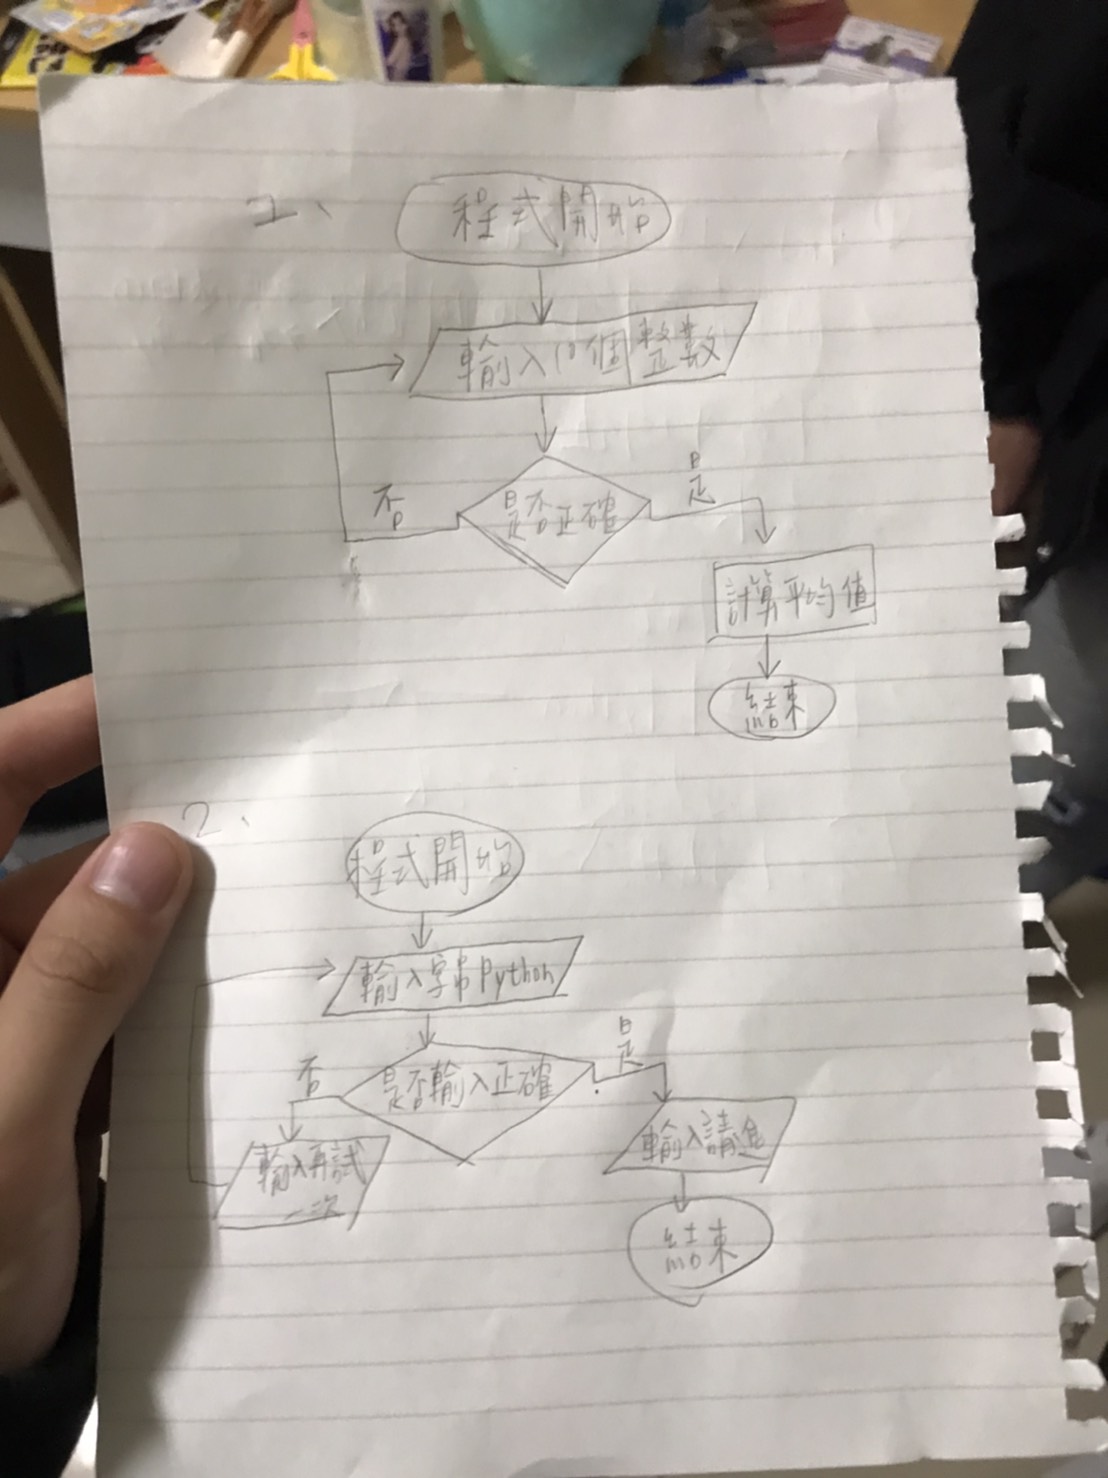 1、
程式開始
輸入10個整數
否
是否正確
是
計算平均值
結束
2、
程式開始
輸入字串Python
否
是否輸入正確
是
輸入再試
一次
輸入請進
結束